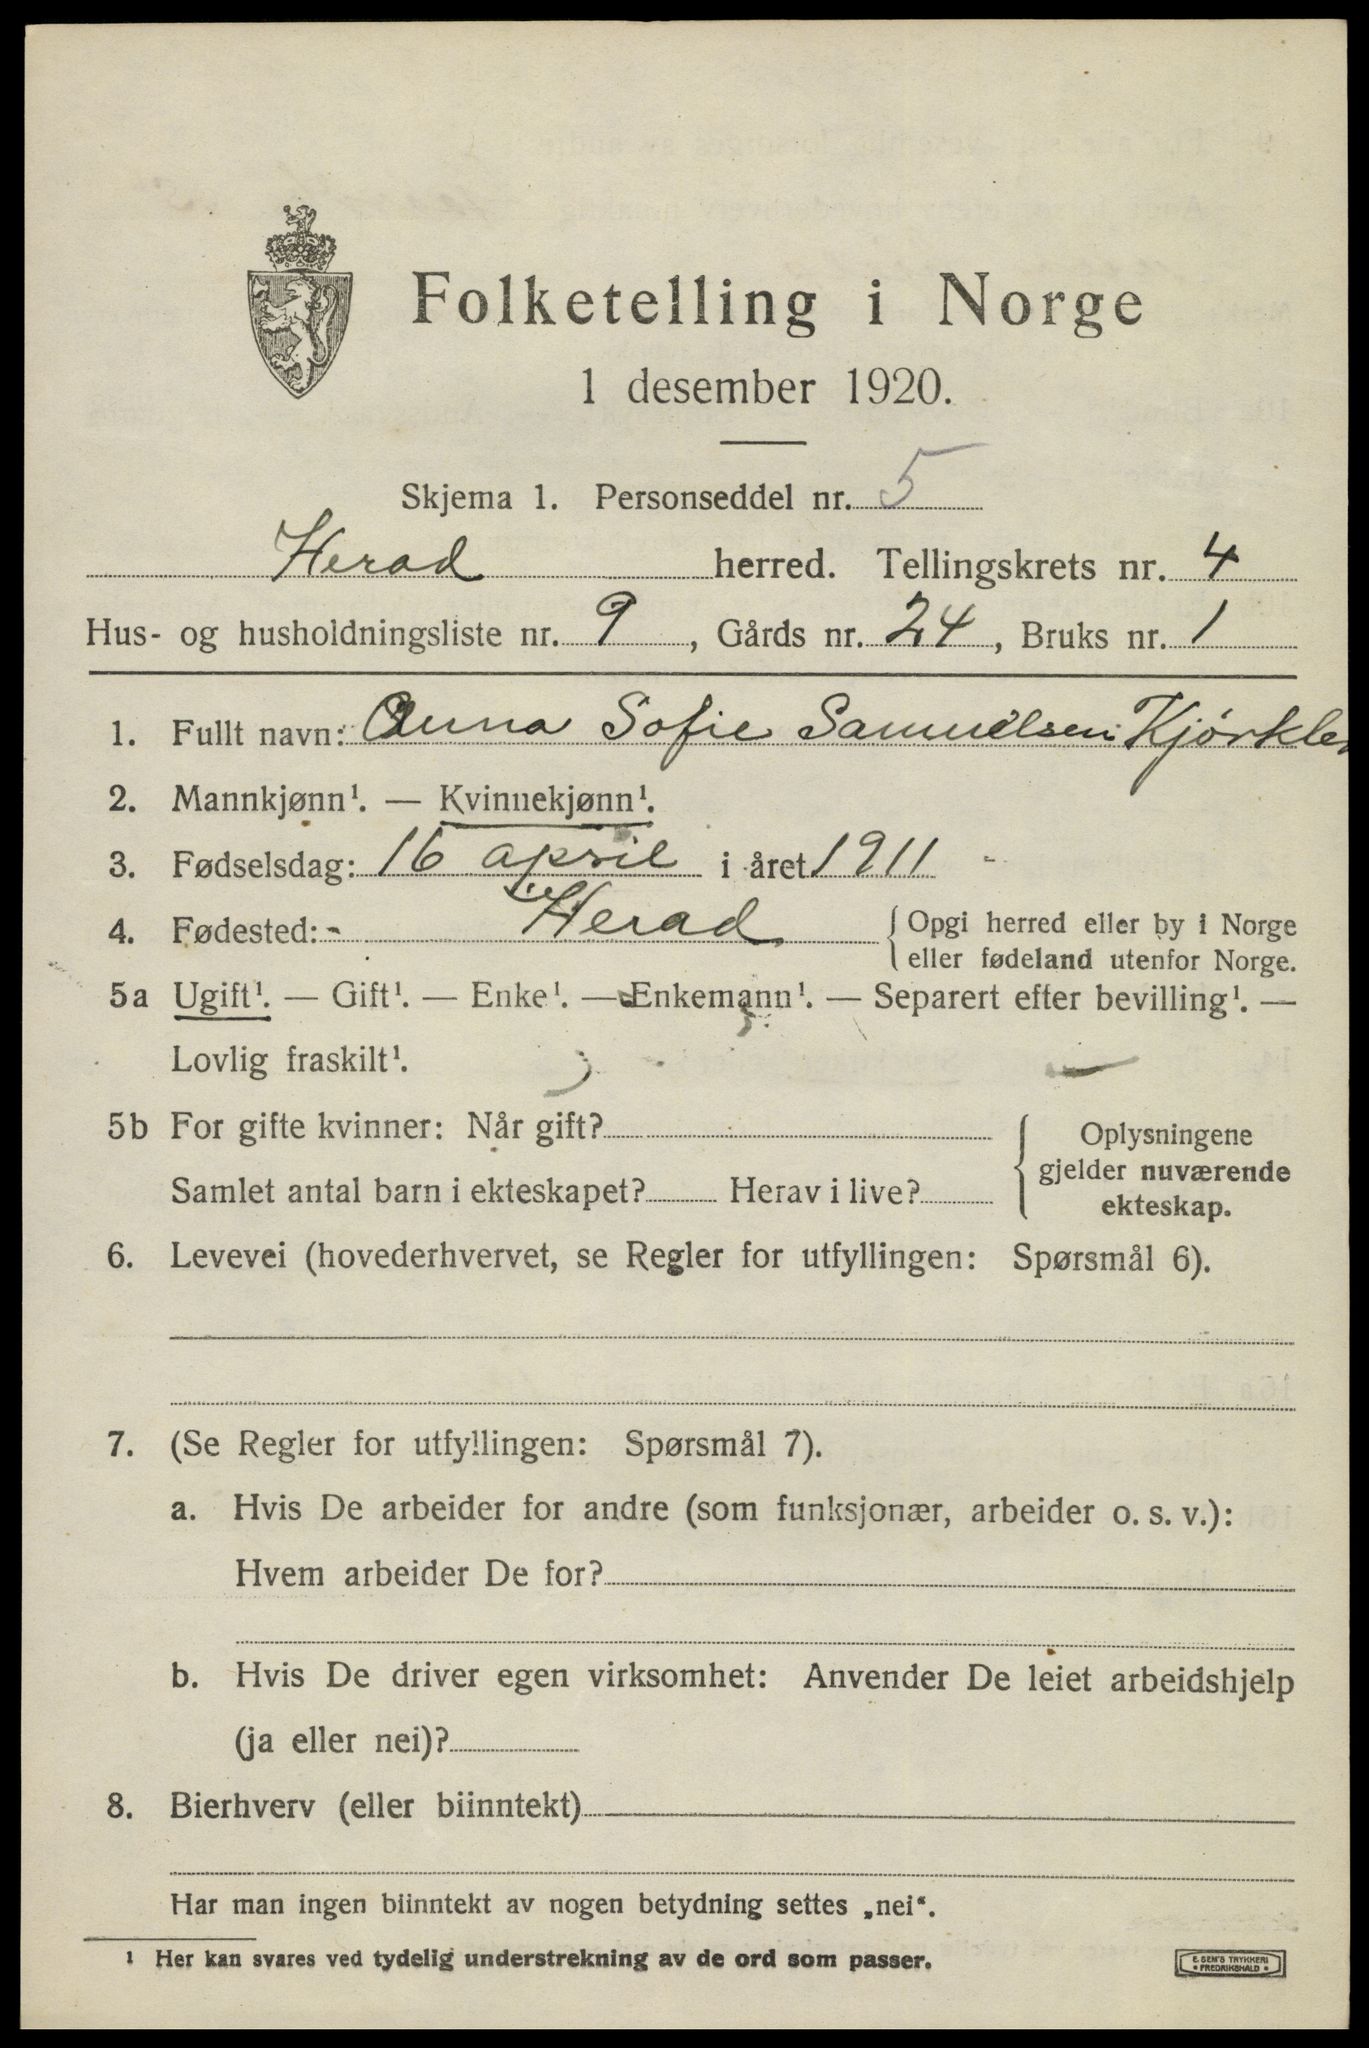 Folketelling i Norge
1 desember 1920.
Skjema 1. Personseddel nr. 5
Herad herred. Tellingskrets nr. 4
Hus- og husholdningsliste nr. 9, Gårds nr. 24, Bruks nr. 1
1. Fullt navn: Anna Sofie Samuelsen Kjørklev
2. Mannkjønn¹. — Kvinnekjønn¹.
3. Fødselsdag: 16 april i året 1911
4. Fødested: Herad { Opgi herred eller by i Norge
eller fødeland utenfor Norge.
5a Ugift¹. — Gift¹. — Enke¹. — Enkemann¹. — Separert efter bevilling¹. —
Lovlig fraskilt¹.
5b For gifte kvinner: Når gift?
Samlet antal barn i ekteskapet? Herav i live?
{ Oplysningene
gjelder nuværende
ekteskap.
6. Levevei (hovederhvervet, se Regler for utfyllingen: Spørsmål 6).
7. (Se Regler for utfyllingen: Spørsmål 7).
a. Hvis De arbeider for andre (som funksjonær, arbeider o. s. v.):
Hvem arbeider De for?
b. Hvis De driver egen virksomhet: Anvender De leiet arbeidshjelp
(ja eller nei)?
8. Bierhverv (eller biinntekt)
Har man ingen biinntekt av nogen betydning settes „nei“.
¹ Her kan svares ved tydelig understrekning av de ord som passer.
E. SEM'S TRYKKERI
• FREDRIKSHALD •